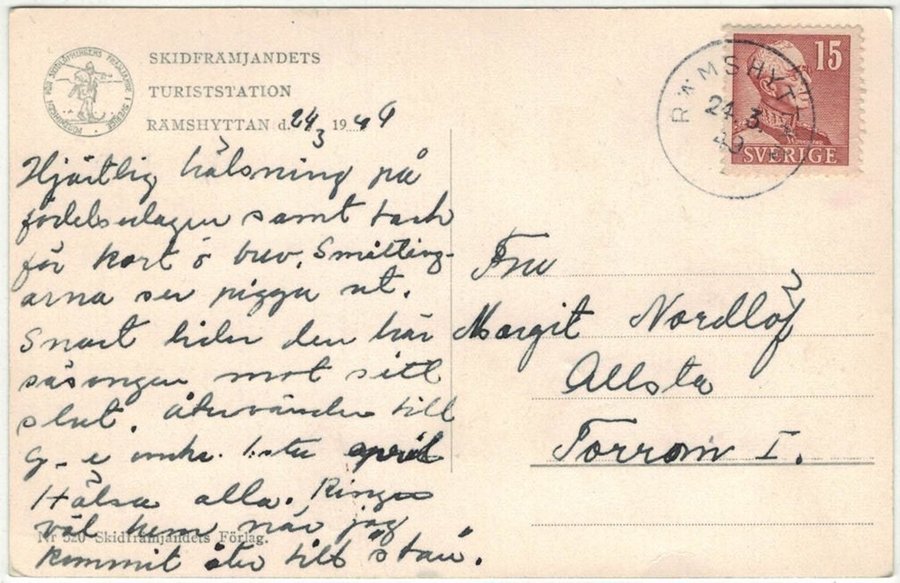 SKIDFRÄMJANDETS
TURISTSTATION
RÄMSHYTTAN d. 24/3 1949
Hjärtlig hälsning på
födelsedagen samt tack
för kort o brev. Smilling-
arna ser pigga ut.
Snart lider den här
säsongen mot sitt
slut. Återvänder till
G- e omkr. 1.sta april
Hälsa alla. Ringer
väl hem när jag
kommit åter till "stan".
Nr 520 Skidfrämjandets Förlag.
RÄMSHYTTAN
24.3.
49
15
SVERIGE
Fru
Margit Nordlöf
Allsta
Torrom I.